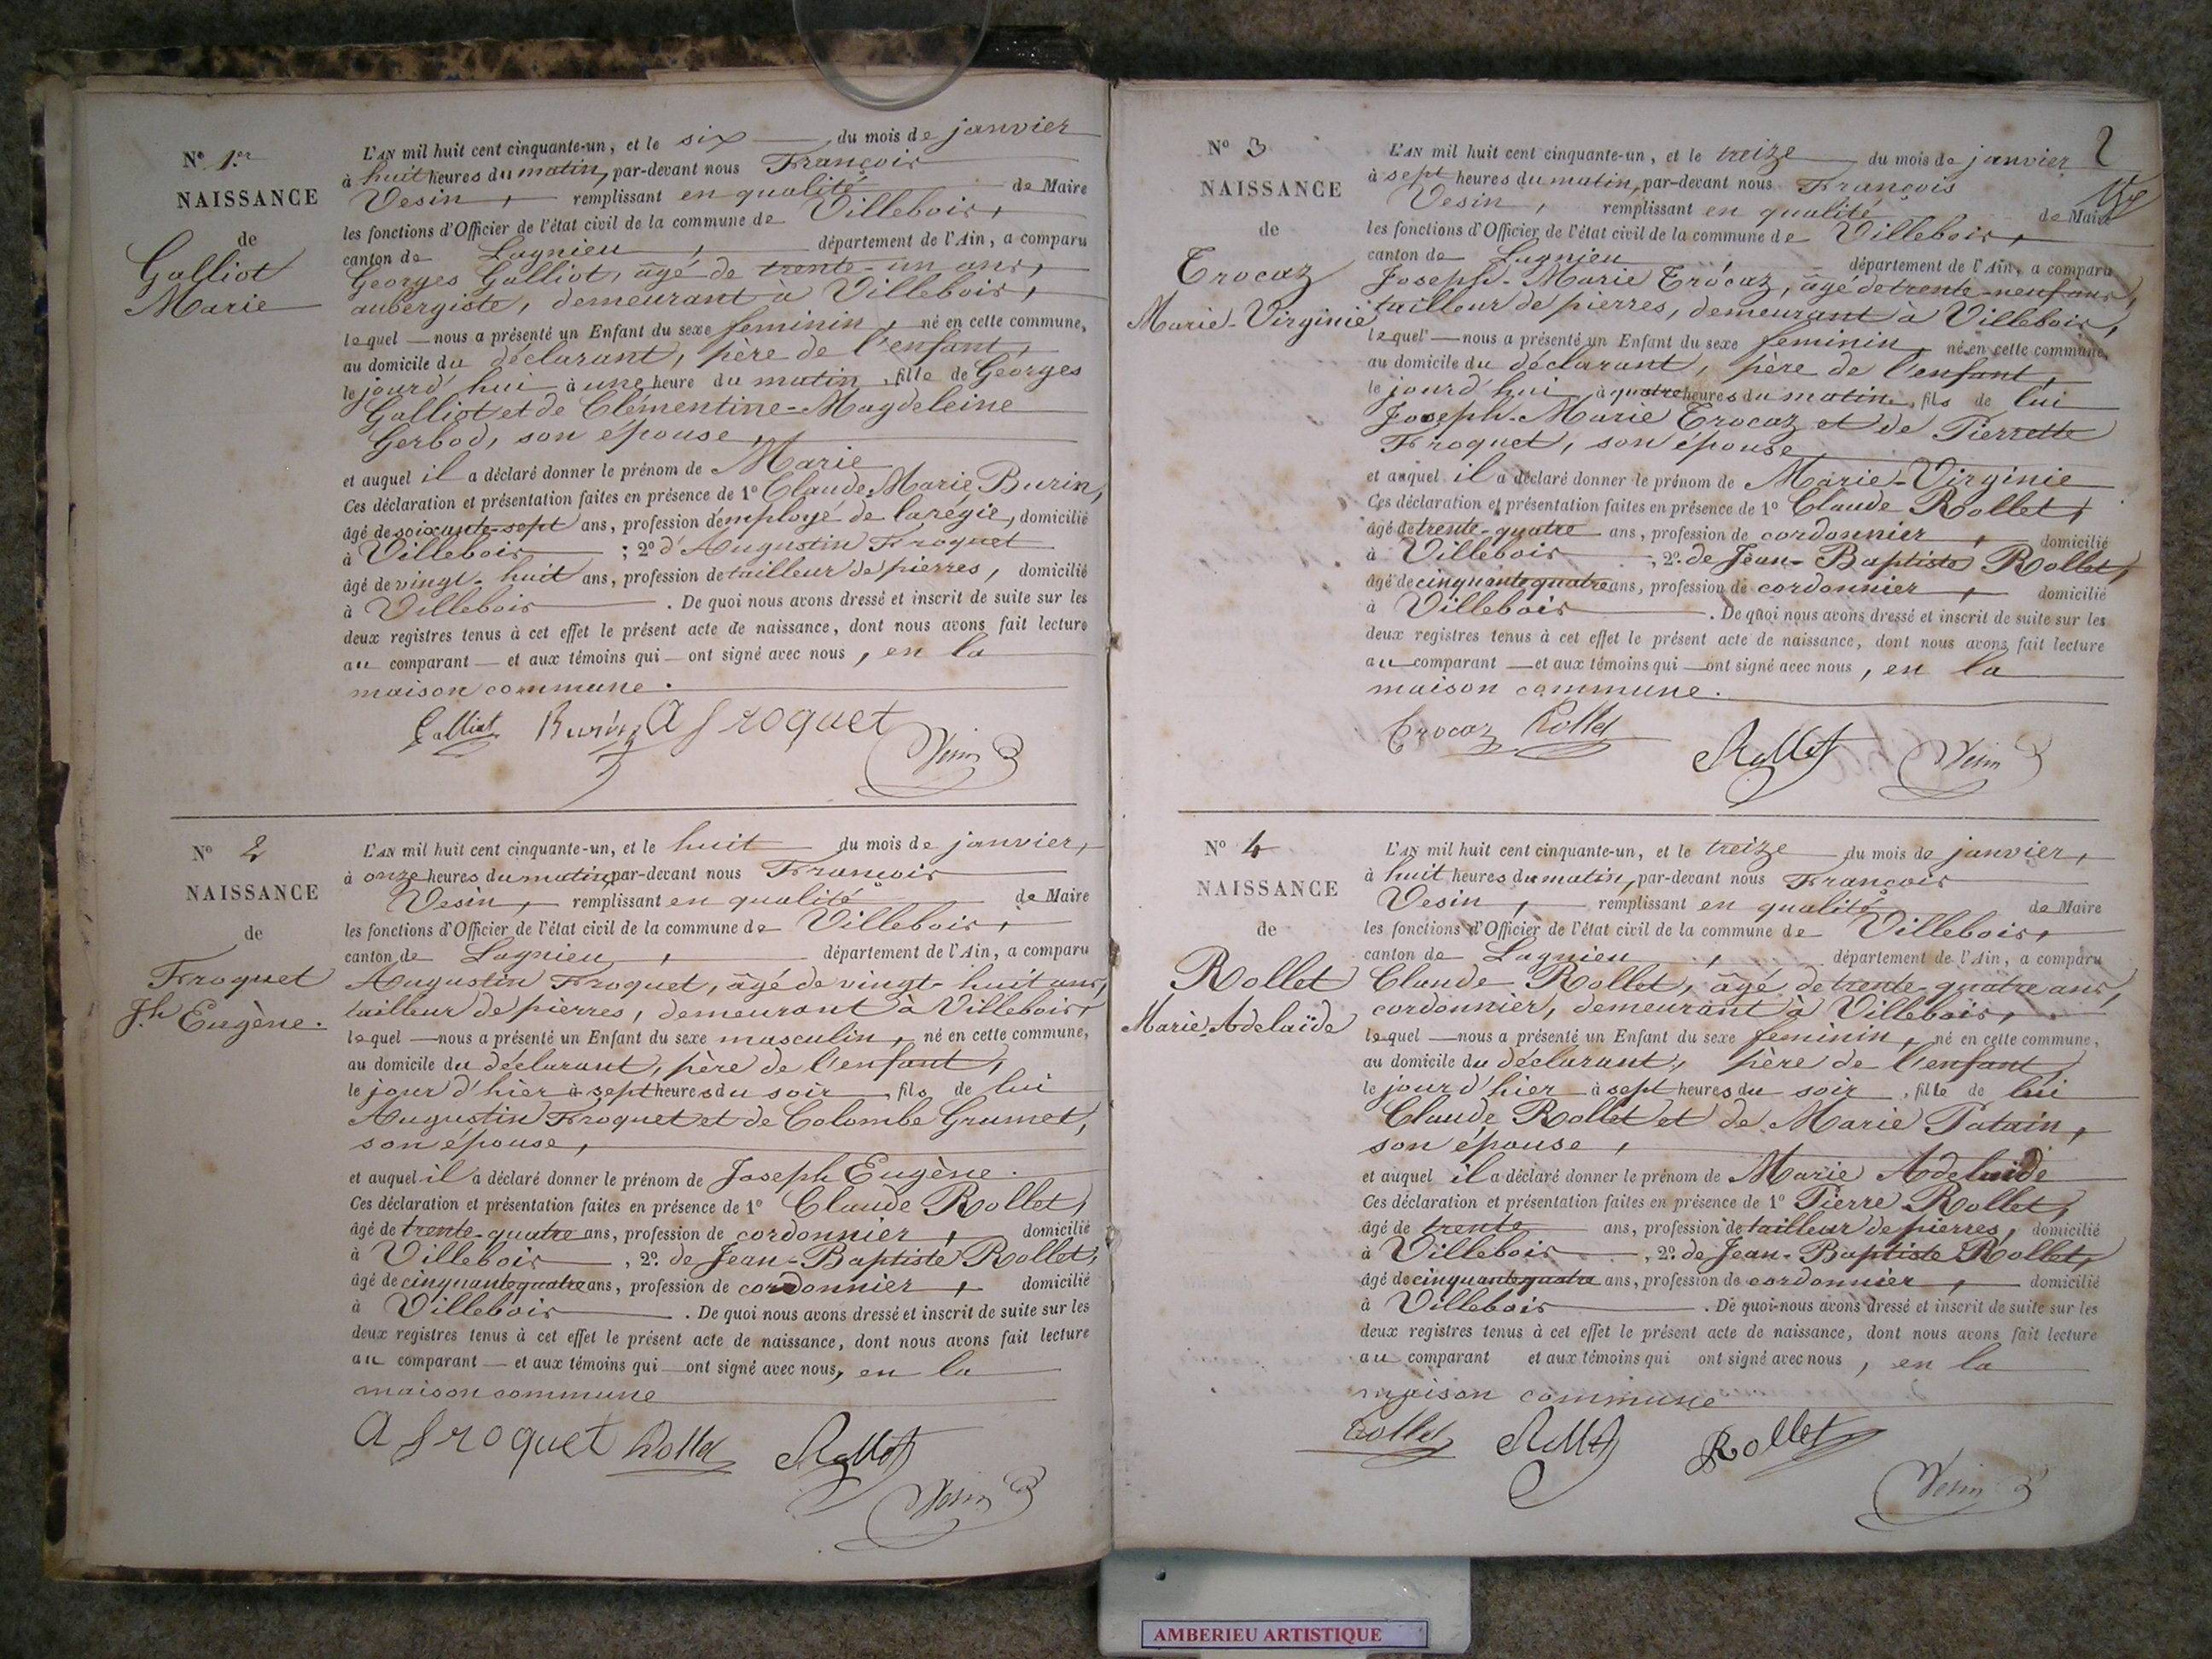 N° 1.er
NAISSANCE
de
Galliot
Marie
L'AN mil huit cent cinquante-un, et le six du mois de janvier
à huit heures du matin, par-devant nous François
Vesin, remplissant en qualité de Maire
les fonctions d'Officier de l'état civil de la commune de Villebois,
canton de Lagnieu, département de l'Ain, a comparu
Georges Galliot, âgé de trente-un ans,
aubergiste, demeurant à Villebois,
lequel nous a présenté un Enfant du sexe feminin, né en cette commune,
au domicile du déclarant, père de l'enfant,
le jourd'hui à une heure du matin, fille de Georges
Galliot et de Clémentine-Magdeleine
Gerbod, son épouse,
et auquel il a déclaré donner le prénom de Marie
Ces déclaration et présentation faites en présence de 1° Claude-Marie Burin,
âgé de soixante-sept ans, profession d'employé de la régie, domicilié
à Villebois ; 2° d'Augustin Froquet
âgé de vingt-huit ans, profession de tailleur de pierres, domicilié
à Villebois. De quoi nous avons dressé et inscrit de suite sur les
deux registres tenus à cet effet le présent acte de naissance, dont nous avons fait lecture
au comparant et aux témoins qui ont signé avec nous, en la
maison commune.
Galliot Burin A froquet
Vesin
N° 2
NAISSANCE
de
Froquet
J.h Eugène.
L'AN mil huit cent cinquante-un, et le huit du mois de janvier,
à onze heures du matin, par-devant nous François
Vesin, remplissant en qualité de Maire
les fonctions d'Officier de l'état civil de la commune de Villebois,
canton de Lagnieu, département de l'Ain, a comparu
Augustin Froquet, âgé de vingt-huit ans,
tailleur de pierres, demeurant à Villebois,
lequel nous a présenté un Enfant du sexe masculin, né en cette commune,
au domicile du déclarant, père de l'enfant,
le jour d'hier à sept heures du soir, fils de lui
Augustin Froquet et de Colombe Grumet,
son épouse,
et auquel il a déclaré donner le prénom de Joseph Eugène.
Ces déclaration et présentation faites en présence de 1° Claude Rollet,
âgé de trente-quatre ans, profession de cordonnier, domicilié
à Villebois, 2° de Jean-Baptiste Rollet,
âgé de cinquante quatre ans, profession de cordonnier, domicilié
à Villebois. De quoi nous avons dressé et inscrit de suite sur les
deux registres tenus à cet effet le présent acte de naissance, dont nous avons fait lecture
au comparant et aux témoins qui ont signé avec nous, en la
maison commune
A froquet Rollet Rollet
Vesin
2
N° 3
NAISSANCE
de
Trocaz
Marie-Virginie
L'AN mil huit cent cinquante-un, et le treize du mois de janvier
à sept heures du matin, par-devant nous François
Vesin, remplissant en qualité de Maire
les fonctions d'Officier de l'état civil de la commune de Villebois,
canton de Lagnieu, département de l'Ain, a comparu
Joseph-Marie Trocaz, âgé de trente-neuf ans,
tailleur de pierres, demeurant à Villebois,
lequel nous a présenté un Enfant du sexe feminin, né en cette commune,
au domicile du déclarant, père de l'enfant,
le jourd'hui à quatre heures du matin, fils de lui
Joseph-Marie Trocaz et de Pierrette
Froquet, son épouse
et auquel il a déclaré donner le prénom de Marie-Virginie
Ces déclaration et présentation faites en présence de 1° Claude Rollet,
âgé de trente-quatre ans, profession de cordonnier, domicilié
à Villebois, 2° de Jean-Baptiste Rollet,
âgé de cinquante quatre ans, profession de cordonnier, domicilié
à Villebois. De quoi nous avons dressé et inscrit de suite sur les
deux registres tenus à cet effet le présent acte de naissance, dont nous avons fait lecture
au comparant et aux témoins qui ont signé avec nous, en la
maison commune.
Trocaz Rollet
Rollet Vesin
N° 4
NAISSANCE
de
Rollet
Marie Adelaïde
L'AN mil huit cent cinquante-un, et le treize du mois de janvier,
à huit heures du matin, par-devant nous François
Vesin, remplissant en qualité de Maire
les fonctions d'Officier de l'état civil de la commune de Villebois,
canton de Lagnieu, département de l'Ain, a comparu
Claude Rollet, âgé de trente-quatre ans,
cordonnier, demeurant à Villebois,
lequel nous a présenté un Enfant du sexe feminin, né en cette commune,
au domicile du déclarant, père de l'enfant,
le jour d'hier à sept heures du soir, fille de lui
Claude Rollet et de Marie Patain,
son épouse,
et auquel il a déclaré donner le prénom de Marie Adelaïde
Ces déclaration et présentation faites en présence de 1° Pierre Rollet,
âgé de trente ans, profession de tailleur de pierres, domicilié
à Villebois, 2° de Jean-Baptiste Rollet,
âgé de cinquante quatre ans, profession de cordonnier, domicilié
à Villebois. De quoi nous avons dressé et inscrit de suite sur les
deux registres tenus à cet effet le présent acte de naissance, dont nous avons fait lecture
au comparant et aux témoins qui ont signé avec nous, en la
maison commune
Rollet Rollet Rollet
Vesin
AMBERIEU ARTISTIQUE